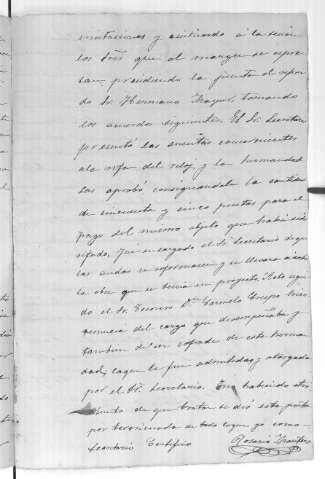 invitaciones y asistiendo á la sesion
los Sres que al margen se expre-
san, presidiendo la junta el referi-
do Sr. Hermano Mayor, tomando
los acuerdos siguientes. El Sr. Secretario
presentó las cuentas concernientes
a la rifa del reloj y la hermandad
las aprobó consignandole la cantidad
de cincuenta y cinco pesetas para el
pago del mismo objeto que habia sido
rifado. Fué encargado el Sr. Secretario de que
las andas se reformasen y se llevara á cabo
la obra que se tenia en proyecto. Acto segui-
do el Sr. Tesorero Dn. Carmelo Crespo hizo
renuncia del cargo que desempeñaba y
tambien de ser cofrade de esta herman-
dad, cargo que le fue admitido y otorgado
por el Sr. Secretario. Y no habiendo otro
asunto de que tratar se dió esta junta
por terminada de todo lo que yo como
Secretario Certifico
Rosario